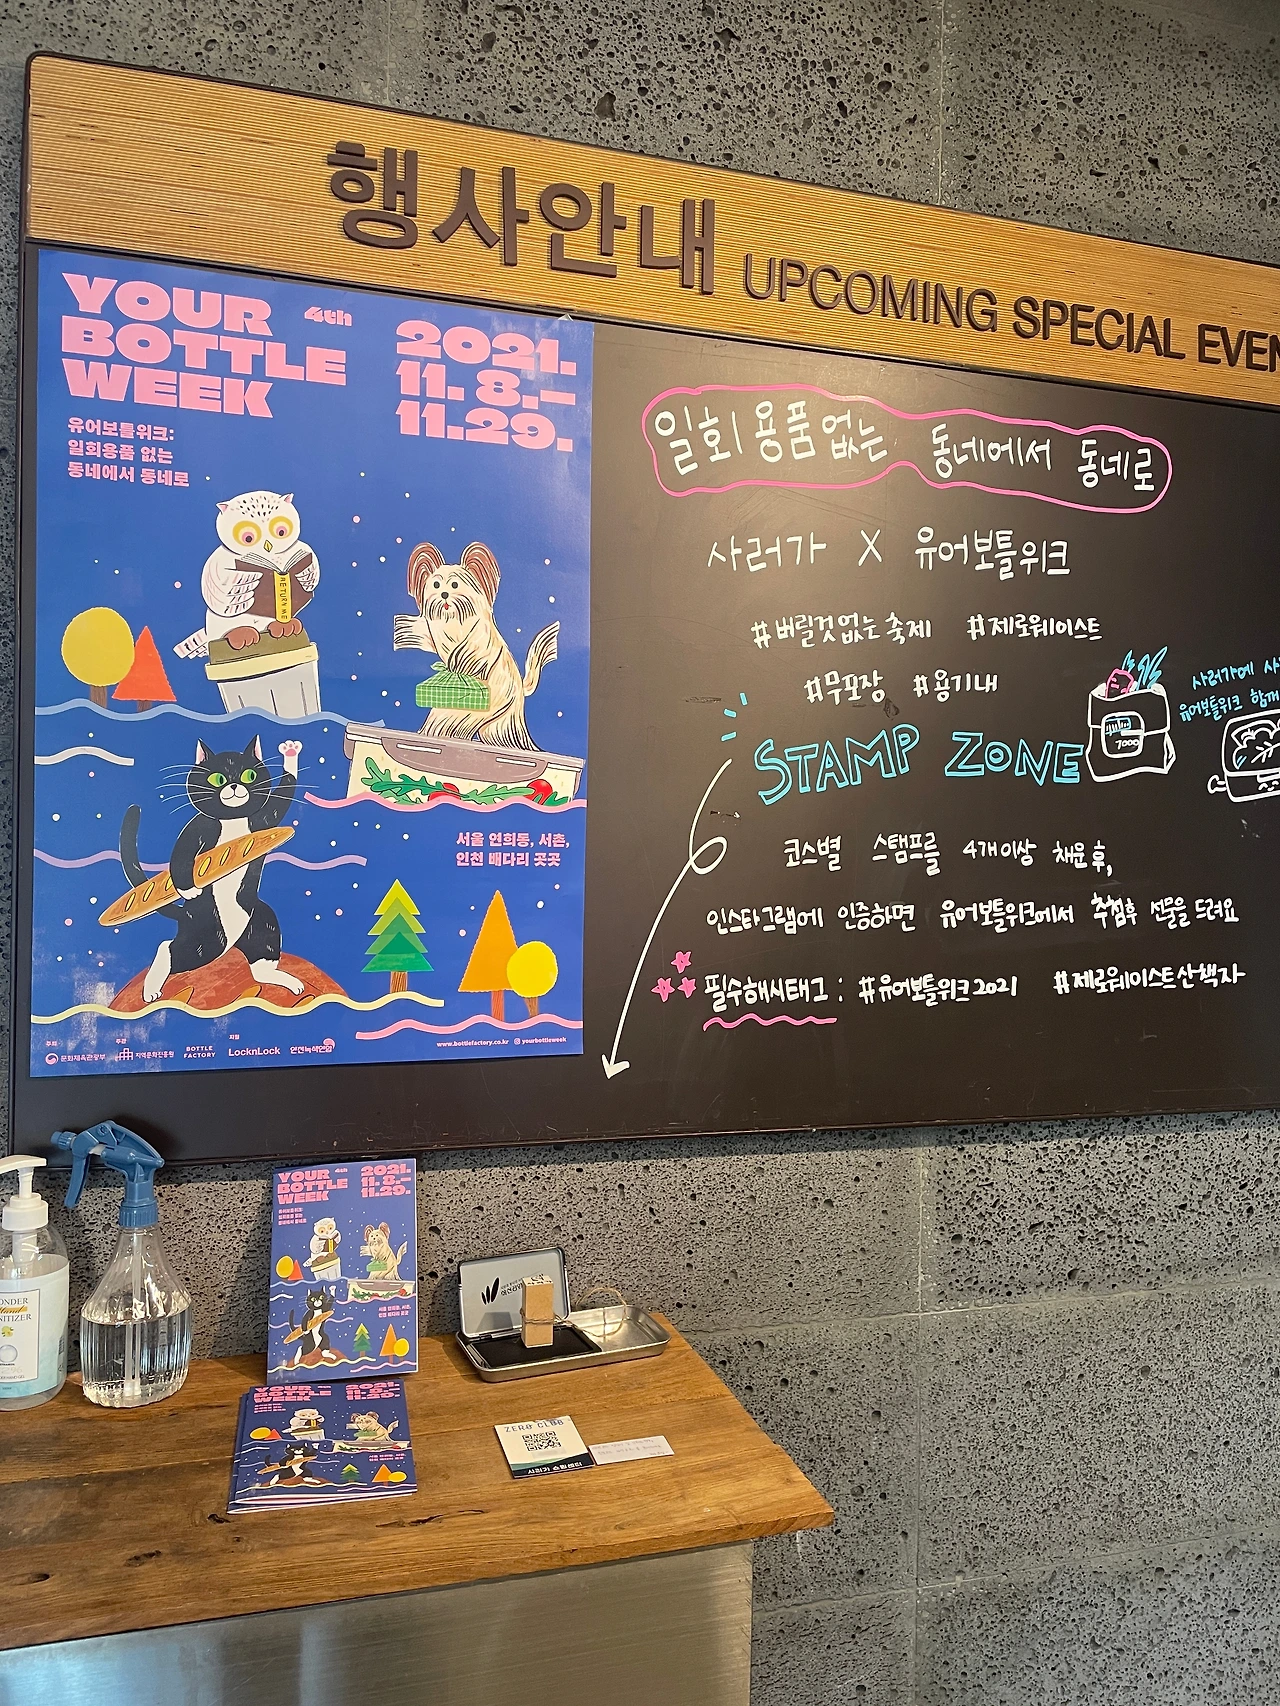 행사안내 UPCOMING SPECIAL EVEN
YOUR 4th
BOTTLE
WEEK
2021.
11. 8.–
11.29.
유어보틀위크:
일회용품 없는
동네에서 동네로
RETURN ME
서울 연희동, 서촌,
인천 배다리 곳곳
주최 주관 지원
문화체육관광부 지역문화진흥원 BOTTLE FACTORY LocknLock 인천녹색연합
www.bottlefactory.co.kr yourbottleweek
일회용품 없는 동네에서 동네로
사러가 X 유어보틀위크
#버릴것없는축제 #제로웨이스트
#무포장 #용기내
STAMP ZONE
7000
사러가에 사
유어보틀위크 함께
코스별 스탬프를 4개이상 채운 후,
인스타그램에 인증하면 유어보틀위크에서 추첨후 선물을 드려요
필수해시태그 : #유어보틀위크2021 #제로웨이스트산책자
YOUR 4th
BOTTLE
WEEK
2021.
11. 8.–
11.29.
유어보틀위크:
일회용품 없는
동네에서 동네로
서울 연희동, 서촌,
인천 배다리 곳곳
YOUR
BOTTLE
WEEK
2021.
11. 8.–
11.29.
ONDER
Hand
NITIZER
ZERO CLUB
사러가 쇼핑센터